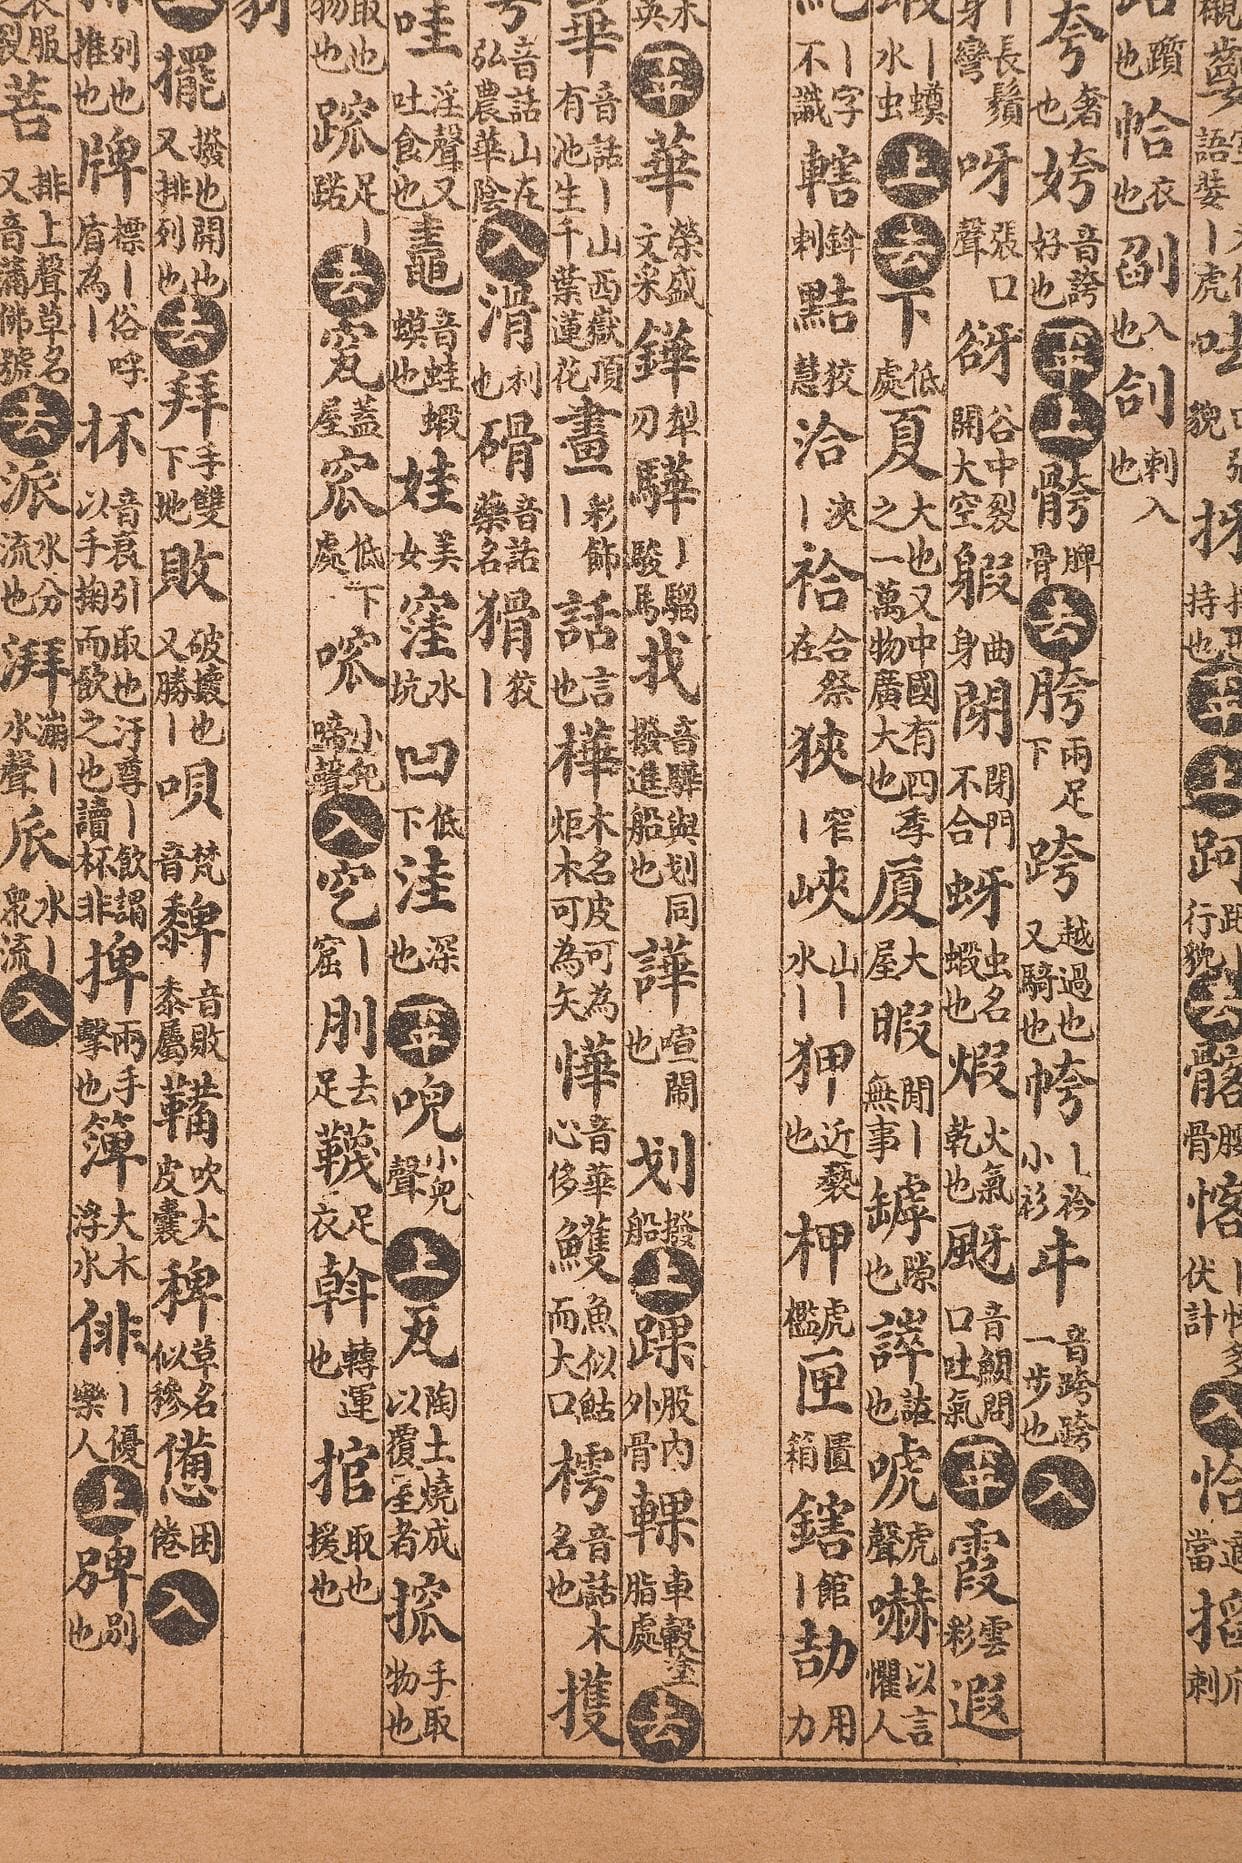 持也平上跒行貌去髂腰骨入恰適當掐刺
躓也帢衣也入也刺入也
夸奢也姱音誇好也下平上骻髀骨去胯兩足下跨越過也又騎也袴丨衿小衫㐄音跨跨一步也入
長鬚身彎呀張口聲谺谷中裂開大空曲身閕閉門不合蚜虫名蝦也煆火氣乾也颬口吐氣下平霞雲彩遐
蝦丨蟆水虫上去下低處夏大也又中國有四季之一萬物廣大也厦大屋暇閒丨無事罅隙也誑也唬虎聲嚇以言懼人
丨字不識轄刺黠狡慧洽浹丨祫合祭在狹窄丨峽山丨水丨狎近褻也柙虎檻匣匱箱鎋館丨劼用力
下平華榮盛文采鏵犁刃驊丨騮駿馬找音驊與划同撥進船也譁喧鬧也划撥船上踝股內外骨輠車轂塗脂處去
華音話丨山西嶽頂有池生千葉蓮花畫彩飾丨話言也樺木名皮可為炬木可為矢音華心侈鱯魚似鮎而大口樗音話木名也擭
音話山在弘農華陰入滑利也磆音話藥名猾狡丨
哇淫聲又吐食也鼃音蛙蝦蟆也娃美女窪水坑凹低下洼深也下平唲小兒聲上瓦陶土燒成以覆屋者手取物也
取也物也足丨去蓋屋窊低下處小兒啼聲入穵丨窟刖去足韈足衣斡轉運也捾取也援也
擺撥也開也又排列也去拜手雙下地敗破壞也又勝丨唄梵音音敗黍屬鞴吹火皮囊稗草名似穇憊困倦入
列也推也牌標丨俗呼盾為丨抔音裒引取也汙尊丨飲謂以手掬而飲之也讀杯非捭兩手擊也大木浮水俳丨優樂人上別也
衣服裂菩排上聲草名又音蒲佛號去派水分流也湃澎丨水聲水丨眾流入